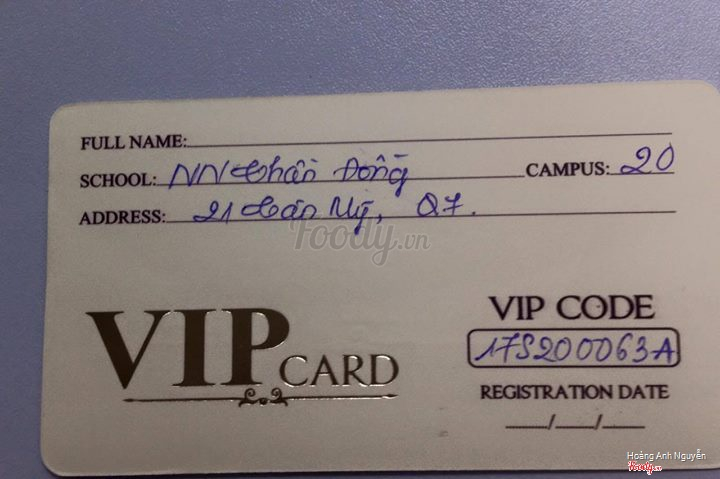 FULL NAME:
SCHOOL: NN Thần Đồng CAMPUS: 20
ADDRESS: 21 Tân Mỹ, Q7.
Foody.vn
VIP CARD
VIP CODE
17S200063A
REGISTRATION DATE
__/__/__
Hoàng Anh Nguyễn
Foody.vn